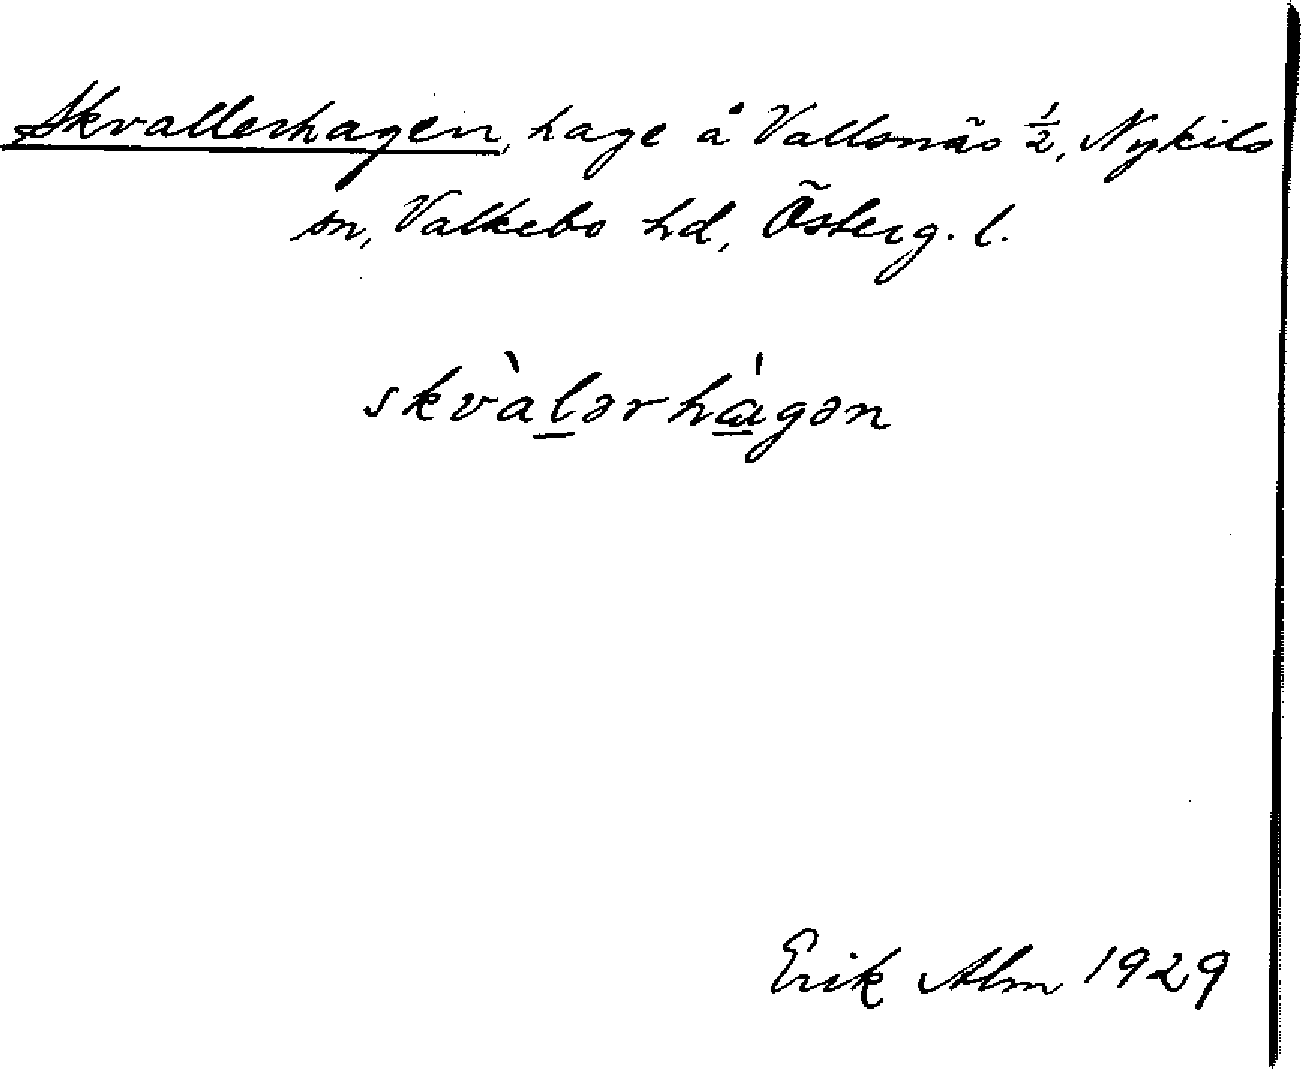 Skvallerhagen, hage å Vallsnäs 1/2, Nykils
sn, Valkebo hd, Österg. l.
skvàl̲ərhá̲gən
Erik Alm 1929